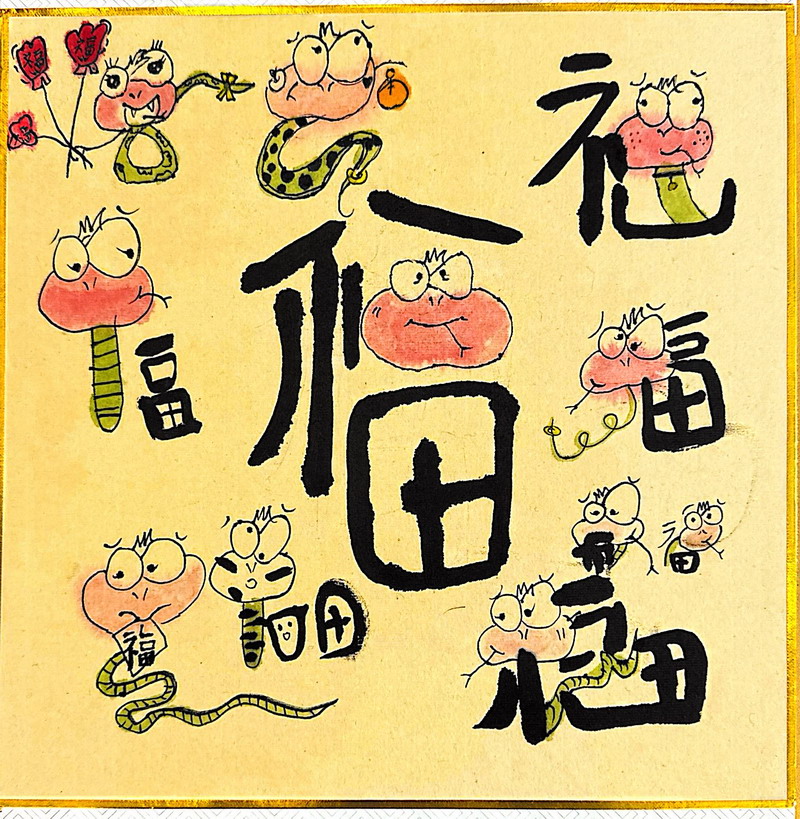 福 福
福
福
福
福
福
福